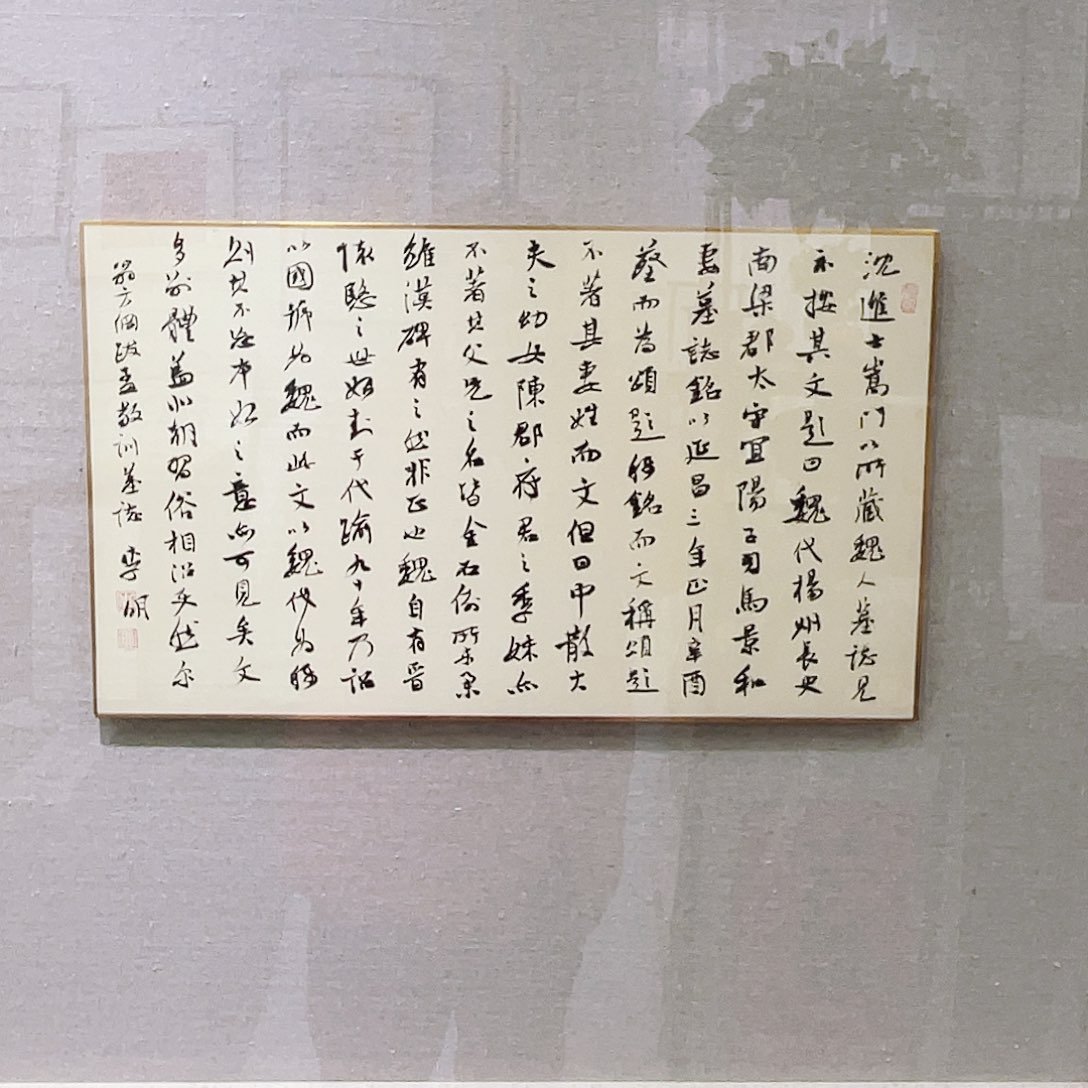 沈進士嵩門以所藏魏人墓誌見
示按其文題曰魏代楊州長史
南梁郡太守宜陽子司馬景和
妻墓誌銘以延昌三年正月辛酉
葬而為頌題稱銘而文稱頌題
不著其妻姓而文但曰中散大
夫之幼女陳郡府君之季妹亦
不著其父兄之名皆金石例所未
雖漢碑有之然非正也魏自有晉
懷愍之世始封于代踰九十年乃詔
以國號為魏而此文以魏代為稱
則其不忘本始之意亦可見矣文
多別體蓋北朝習俗相沿失然尔
翁方綱跋孟敬訓墓誌 李明